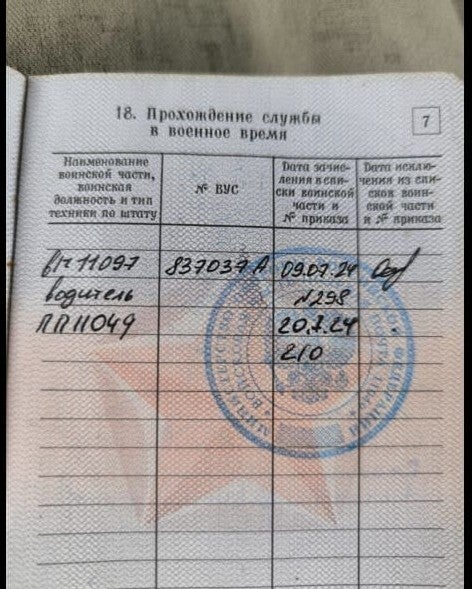 18. Прохождение службы
в военное время
7
Наименование
воинской части,
воинская
должность и тип
техники по штату
№ ВУС
Дата зачис-
ления в спи-
ски воинской
части и
№ приказа
Дата исклю-
чения из спи-
сков воин-
ской части
и № приказа
в/ч 11097 837037А 09.07.24
водитель №298
ПП11049 20.7.24
210
МИНИСТЕРСТВО ФЕДЕРАЦИИ